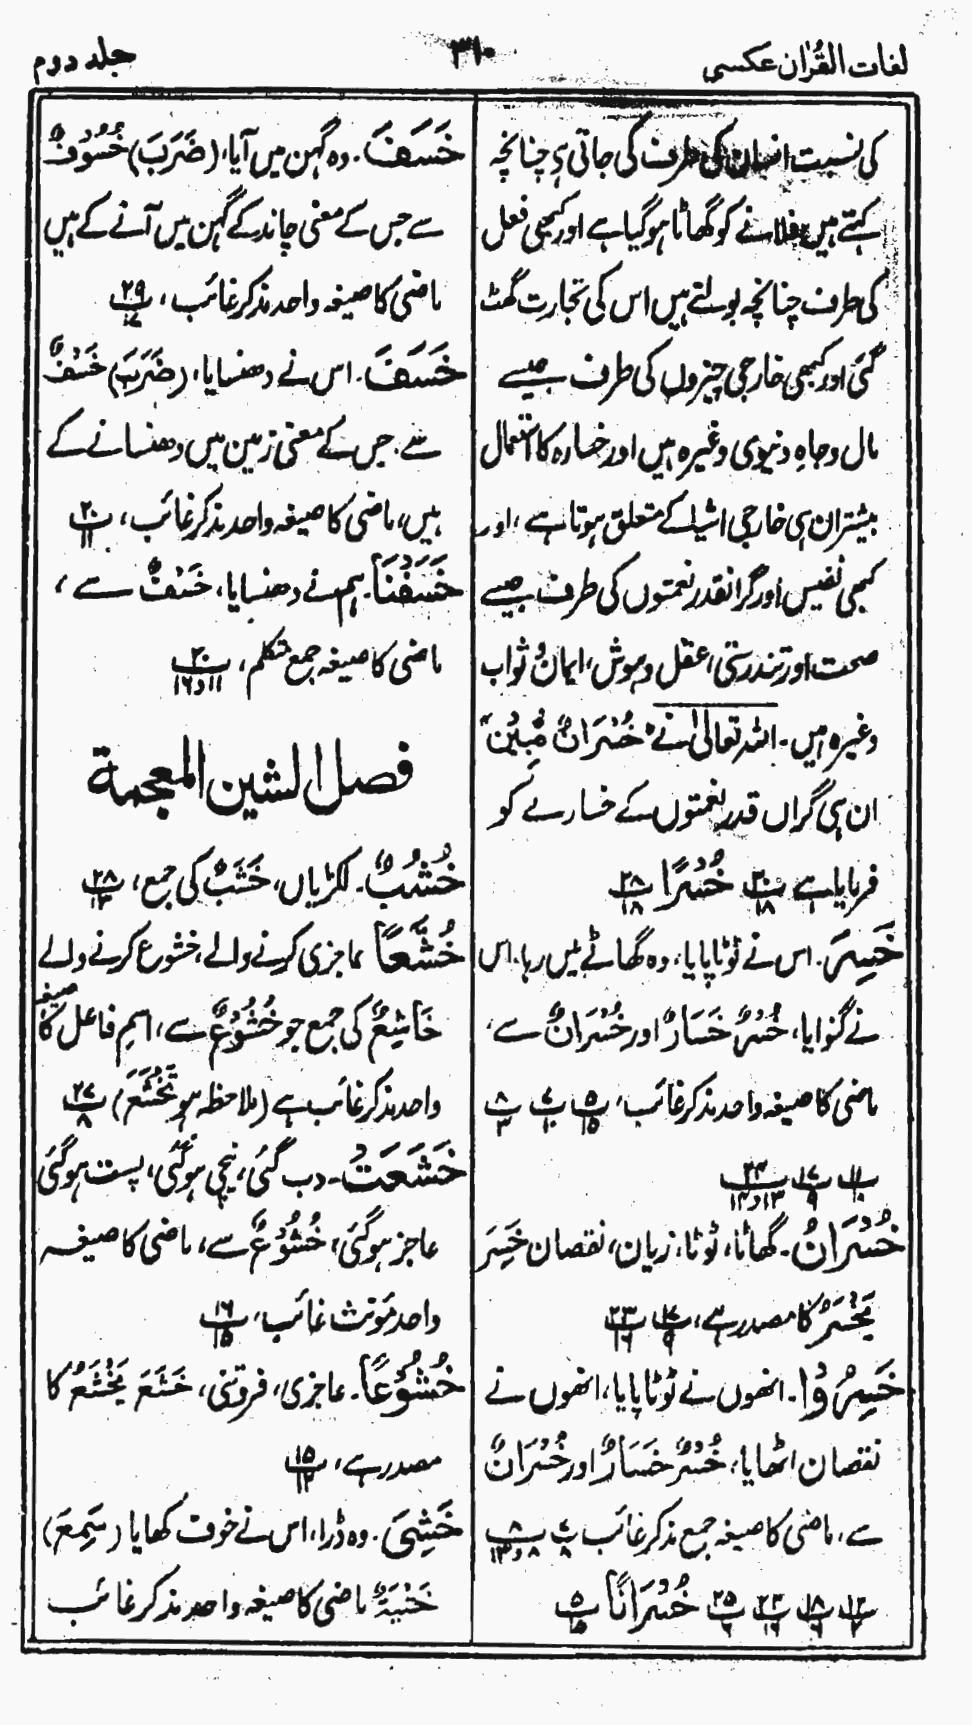 لغات القُرٰان عکسی
۳۱۰
جلد دوم
کی نسبت انسان کی طرف کی جاتی ہی چنانچہ
کہتے ہیں فلانے کو گھاٹا ہوگیا ہے اور کبھی فعل
کی طرف چنانچہ بولتے ہیں اس کی تجارت گھٹ
گئی اور کبھی خارجی چیزوں کی طرف جیسے
مال و جاہِ دنیوی وغیرہ ہیں اور خسارہ کا استعمال
بیشتر ان ہی خارجی اشیا کے متعلق ہوتا ہے، اور
کبھی نفیس اور گرانقدر نعمتوں کی طرف جیسے
صحت اور تندرستی، عقل و ہوش، ایمان ثواب
وغیرہ ہیں۔ اللہ تعالیٰ نے ”خُسْرَانٌ مُّبِیْنٌ“
ان ہی گراں قدر نعمتوں کے خسارے کو
فرمایا ہے خُسْرًا ۲۸/۱۸
خَسِرَ۔ اس نے ٹوٹا پایا، وہ گھاٹے میں رہا، اس
نے گنوایا، خُسْرٌ خَسَارٌ اور خُسْرَانٌ سے،
ماضی کا صیغہ واحد مذکر غائب، ۵/۱۵
۱۱/ ۱۷/۹ ۲۳/۱۳و۱۴
خُسْرَانٌ۔ گھاٹا، ٹوٹا، زیان، نقصان خَسِرَ
یَخْسَرُ کا مصدر ہے، ۱۷/۹ ۲۳/۱۶
خَسِرُوْا۔ انھوں نے ٹوٹا پایا، انھوں نے
نقصان اٹھایا، خُسْرٌ خَسَارٌ اور خُسْرَانٌ
سے، ماضی کا صیغہ جمع مذکر غائب ۷/۸ ۸/۸و۱۳
۱۲/۲ ۱۸/۶ ۲۳/۱۶ ۲۵/۶ خُسْرَانًا ۵/۱۵
خَسَفَ۔ وہ گہن میں آیا، (ضَرَبَ) خُسُوْفٌ
سے جس کے معنی چاند کے گہن میں آنے کے ہیں
ماضی کا صیغہ واحد مذکر غائب، ۲۹/۱۷
خَسَفَ۔ اس نے دھنسایا، (ضَرَبَ) خَسْفٌ
سے۔ جس کے معنی زمین میں دھنسانے کے
ہیں، ماضی کا صیغہ واحد مذکر غائب، ۲۰/۱۱
خَسَفْنَا۔ ہم نے دھنسایا، خَسْفٌ سے،
ماضی کا صیغہ جمع متکلم، ۲۰/۱۱و۱۶
فصل الشین المعجمة
خُشُبٌ۔ لکڑیاں، خَشَبٌ کی جمع، ۲۸/۱۳
خُشَّعًا عاجزی کرنے والے، خشوع کرنے والے
خَاشِعٌ کی جمع جو خُشُوْعٌ سے، اسمِ فاعل کا صیغہ
واحد مذکر غائب ہے (ملاحظہ ہو تَخْشَعَ) ۲۷/۸
خَشَعَتْ۔ دب گئی، نیچی ہوگئی، پست ہوگئی
عاجز ہوگئی، خُشُوْعٌ سے، ماضی کا صیغہ
واحد مؤنث غائب، ۱۶/۱۵
خُشُوْعًا۔ عاجزی، فروتنی، خَشَعَ یَخْشَعُ کا
مصدر ہے، ۱۵/۱۲
خَشِیَ۔ وہ ڈرا، اس نے خوف کھایا (سَمِعَ)
خَشْیَةٌ ماضی کا صیغہ واحد مذکر غائب